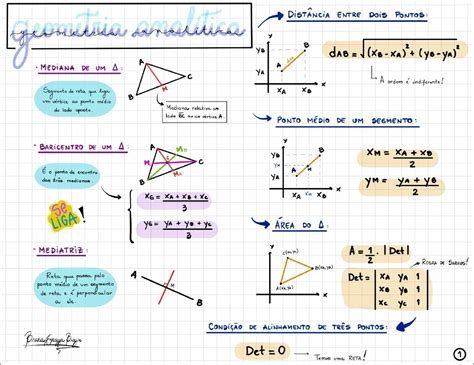 geometria analítica
• MEDIANA DE UM Δ:
Segmento de reta que liga
um vértice ao ponto médio
do lado oposto.
A
B
C
M
Mediana relativa ao
lado BC ou ao vértice A.
• BARICENTRO DE UM Δ:
É o ponto de encontro
das três medianas
A
B
C
M
XG = XA + XB + XC / 3
YG = YA + YB + YC / 3
SE
LIGA!
• MEDIATRIZ:
Reta que passa pelo
ponto médio de um segmento
de reta e é perpendicular
ao ele.
A
M
B
DISTÂNCIA ENTRE DOIS PONTOS:
Y
YB
YA
A
B
XA
XB
X
dAB = √(XB - XA)² + (YB - YA)²
A ordem é indiferente!
PONTO MÉDIO DE UM SEGMENTO:
Y
YB
YA
A
M
B
XA
XB
X
XM = XA + XB / 2
YM = YA + YB / 2
ÁREA DO Δ:
Y
C(XC,YC)
B(XB,YB)
A(XA,YA)
X
A = 1/2 . |Det|
REGRA DE SARRUS!
Det = | XA YA 1
XB YB 1
XC YC 1 |
CONDIÇÃO DE ALINHAMENTO DE TRÊS PONTOS:
Det = 0
TEMOS UMA RETA!
1